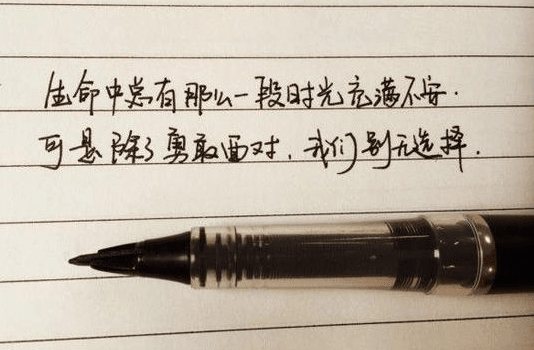 生命中总有那么一段时光充满不安.
可是除了勇敢面对,我们别无选择.